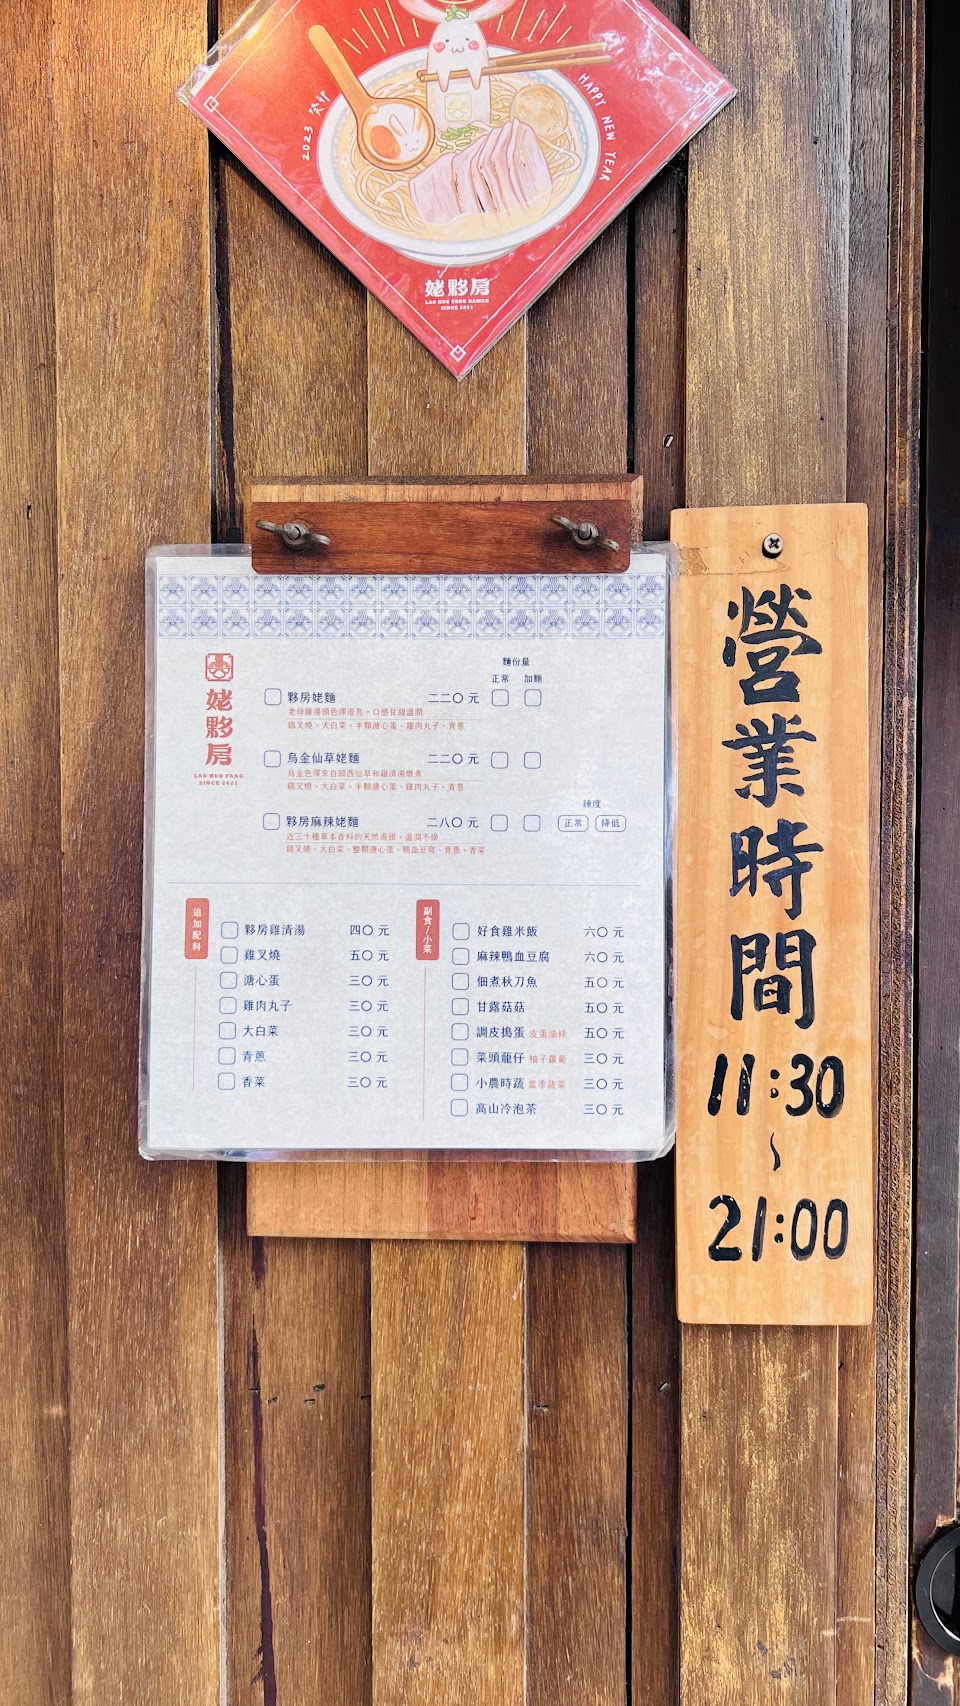 2023 癸卯
HAPPY NEW YEAR
姥夥房
LAO HUO FANG RAMEN
SINCE 2021
姥夥房
LAO HUO FANG
SINCE 2021
麵份量
正常 加麵
夥房姥麵 二二〇 元
老母雞湯頭色澤澄亮，口感甘甜溫潤
鷄叉燒、大白菜、半顆溏心蛋、雞肉丸子、青蔥
烏金仙草姥麵 二二〇 元
烏金色澤來自關西仙草和雞清湯燉煮
鷄叉燒、大白菜、半顆溏心蛋、雞肉丸子、青蔥
辣度
夥房麻辣姥麵 二八〇 元 正常 降低
近三十種草本香料的天然湯頭，溫潤不燥
鷄叉燒、大白菜、整顆溏心蛋、鴨血豆腐、青蔥、香菜
追加配料
夥房雞清湯 四〇 元
雞叉燒 五〇 元
溏心蛋 三〇 元
雞肉丸子 三〇 元
大白菜 三〇 元
青蔥 三〇 元
香菜 三〇 元
副食/小菜
好食雞米飯 六〇 元
麻辣鴨血豆腐 六〇 元
佃煮秋刀魚 五〇 元
甘露菇菇 五〇 元
調皮搗蛋 皮蛋油條 五〇 元
菜頭龍仔 柚子蘿蔔 三〇 元
小農時蔬 當季蔬菜 三〇 元
高山冷泡茶 三〇 元
營業時間
11:30
~
21:00